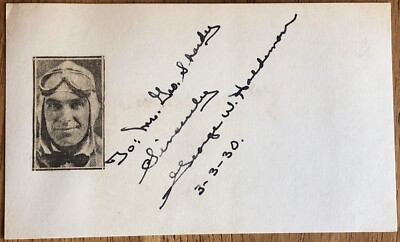 To: Mr. Geo. Shardy
Sincerely
George W. Haldeman
3-3-30.